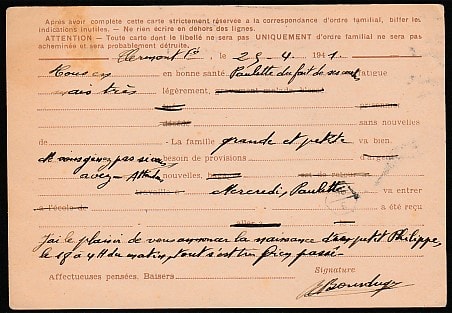 Après avoir complété cette carte strictement réservée à la correspondance d'ordre familial, biffer les
indications inutiles. — Ne rien écrire en dehors des lignes.
ATTENTION - Toute carte dont le libellé ne sera pas UNIQUEMENT d'ordre familial ne sera pas
acheminée et sera probablement détruite.
Clermont Fd le 29-4- 1941
en bonne santé Paulette du fait de fatigue
mais très légèrement, gravement malade, blessé
prisonnier
décédé sans nouvelles
de - La famille grande et petite va bien.
besoin de provisions d'argent
avez - nouvelles, est de retour
travaille Mercredi, Paulette va entrer
à l'école d a été reçu
aller
J'ai le plaisir de vous annoncer la naissance d'un petit Philippe,
le 18 à 4H du matin, tout s'est très bien passé
Affectueuses pensées, Baisers Signature